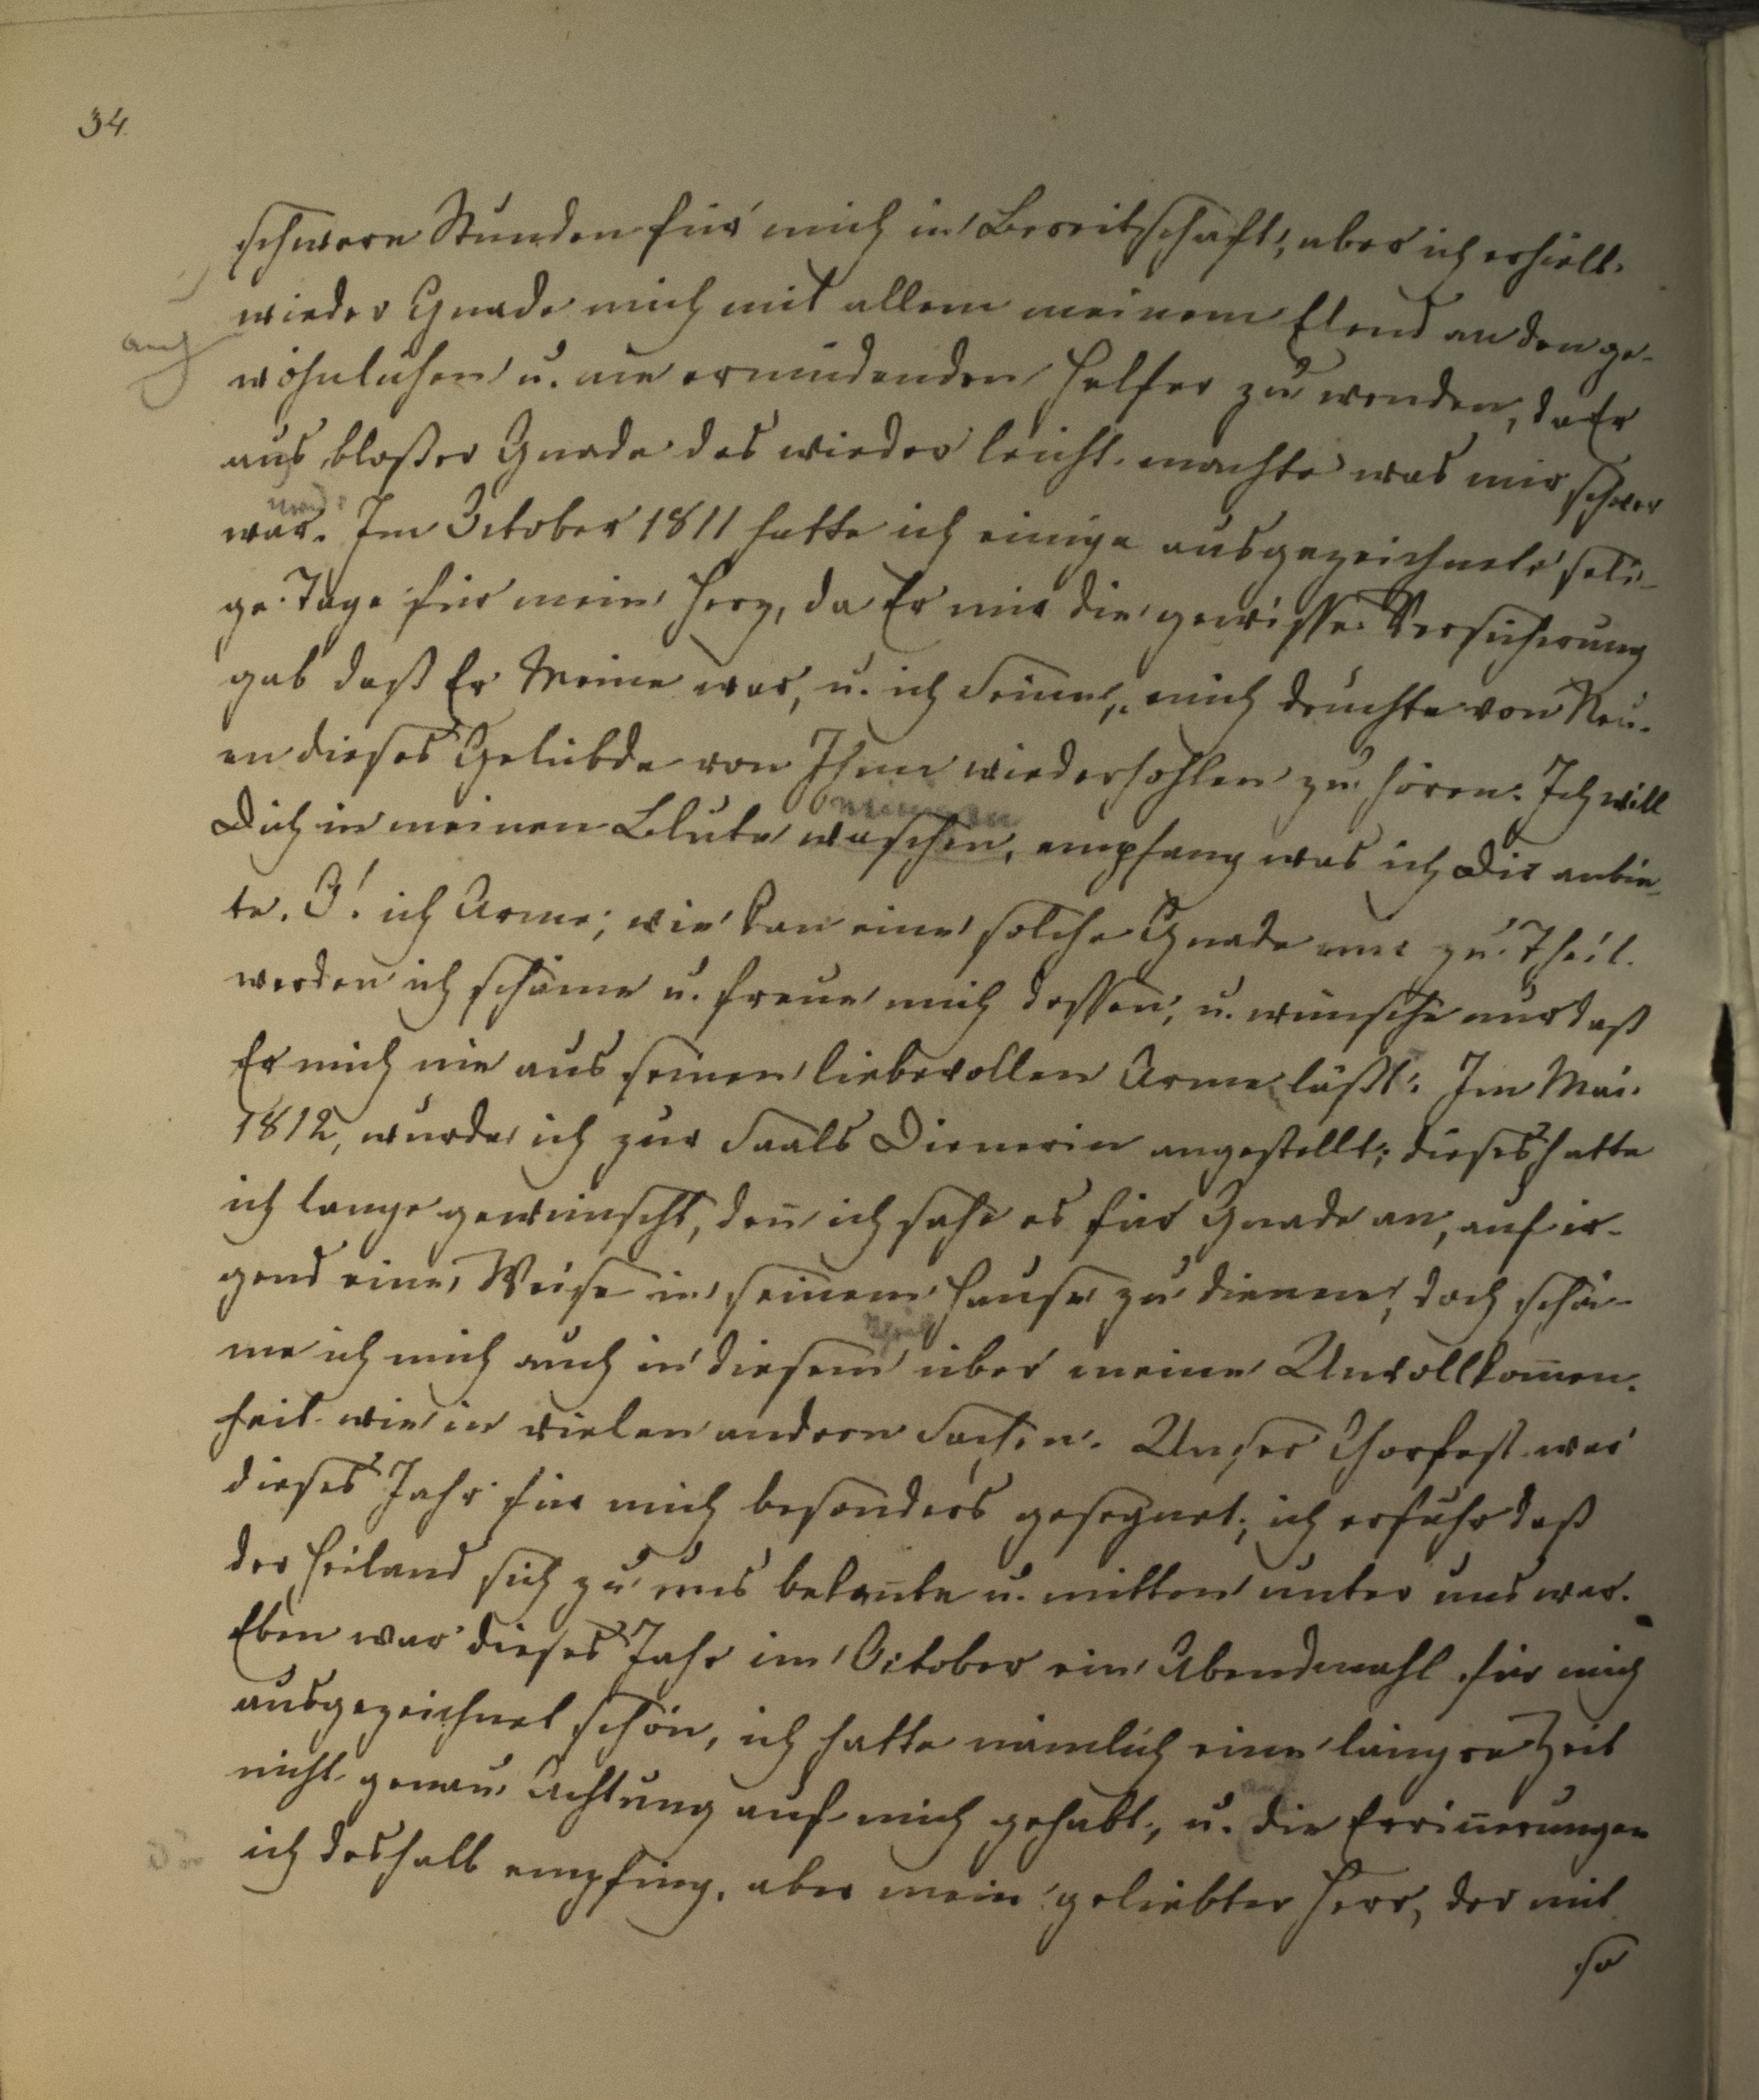 34.
schwere Stunden für mich in Bereitschaft; aber ich erhielt
wieder Gnade mich mit allem meinem Elend an den ge-
auch
wöhnlichen u. nie ermüdenden Helfer zu wenden, da Er
aus bloßer Gnade das wieder leicht machte was mir schwer
war. Im October 1811 hatte ich einige ausgezeichnete seli-
ge Tage für mein Herz, da Er mir die gewisse Versicherung
gab daß Er Meine war, u. ich Seine, mich deuchte von Neu-
en dieses Gelübde von Ihm wiederhohlen zu hören: Ich will
Dich in meinen Blute waschen, empfang was ich Dir anbie-
te. O! ich Arme; wie kan eine solche Gnade mir zu Theil
werden ich schäme u. freue mich dessen, u. wünsche nur daß
Er mich nie aus seinen liebevollen Arme läßt. Im Mai
1812, wurde ich zur Saals Dienerin angestellt; dieses hatte
ich lange gewünscht, den̄ ich sahe es für Gnade an, auf ir-
gend eine Weise in seinem Hause zu dienen, doch schä-
me ich mich auch in diesem über meine Unvollkom̄en-
heit wie in vielen andern Sachen. Unser Chorfest war
dieses Jahr für mich besonders gesegnet; ich erfuhr daß
der Heiland sich zu uns bekante u. mitten unter uns war.
Eben war dieses Jahr im October ein Abendmahl für mich
ausgezeichnet schön, ich hatte nämlich eine längre Zeit
nicht genau Achtung auf mich gehabt, u. die Errin̄erungen
ich deshalb empfing, aber mein geliebter Herr, der mit
so